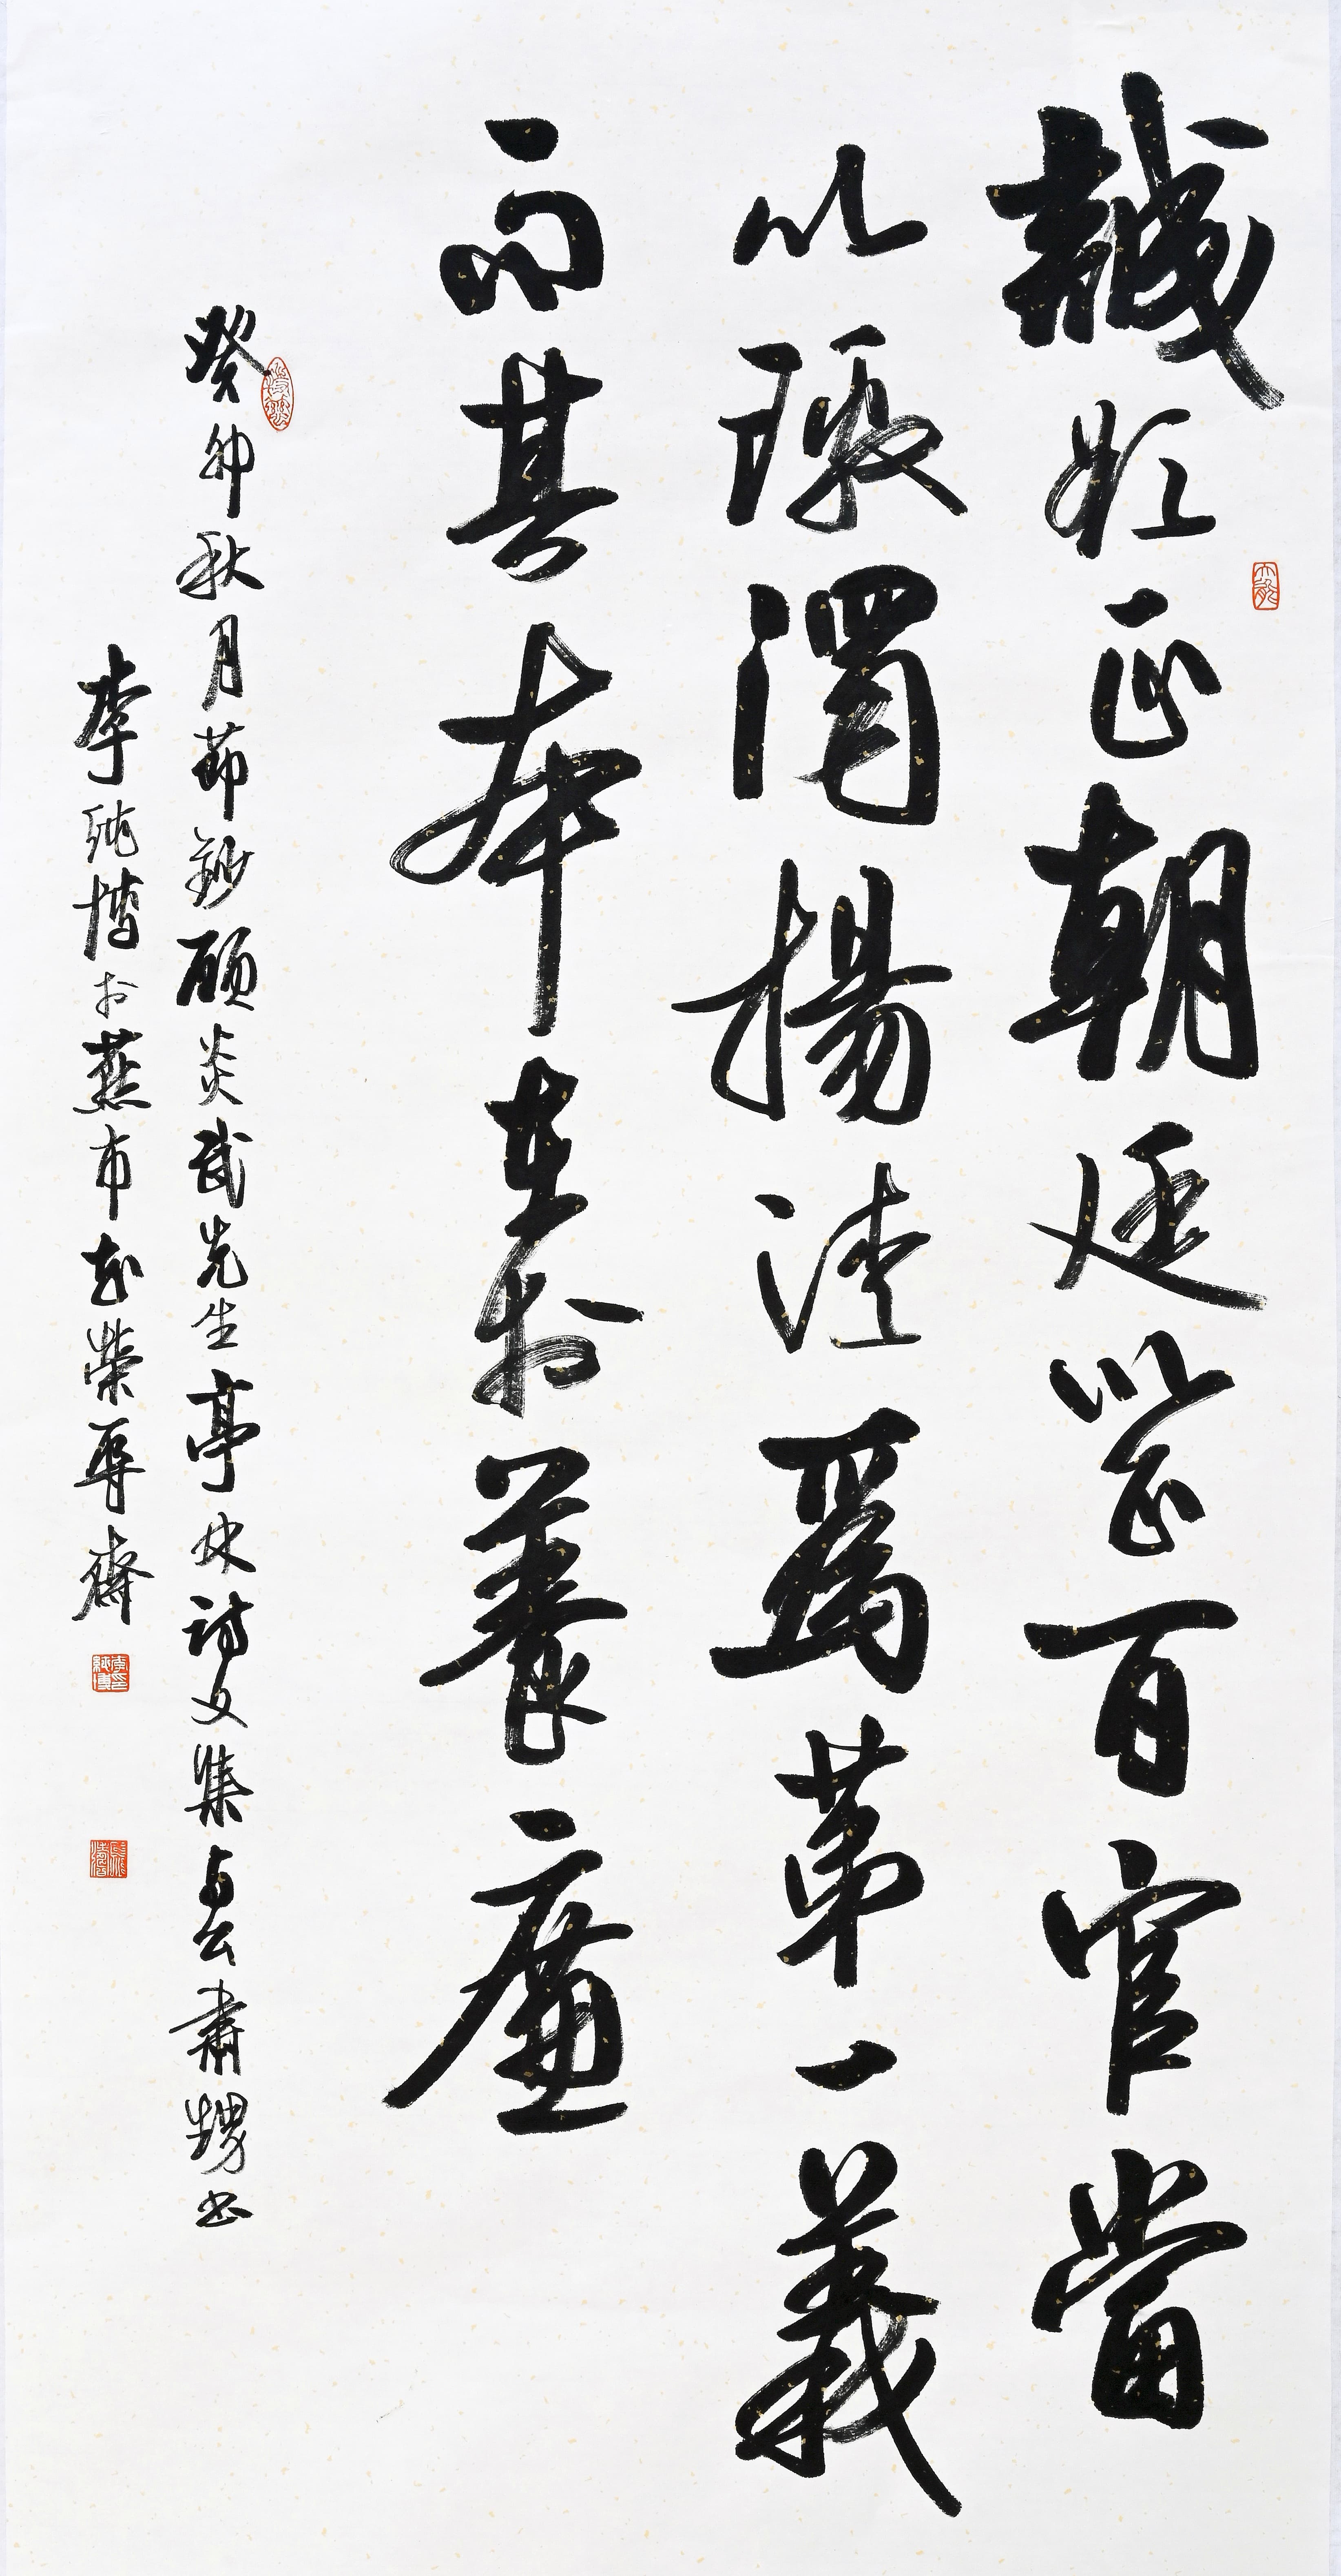 誠欲正朝廷以正百官當
以激濁揚清爲第一義
而其本在於養廉
癸卯秋月節鈔顧炎武先生亭林詩文集與公肅甥書
李純博於燕市榮齋